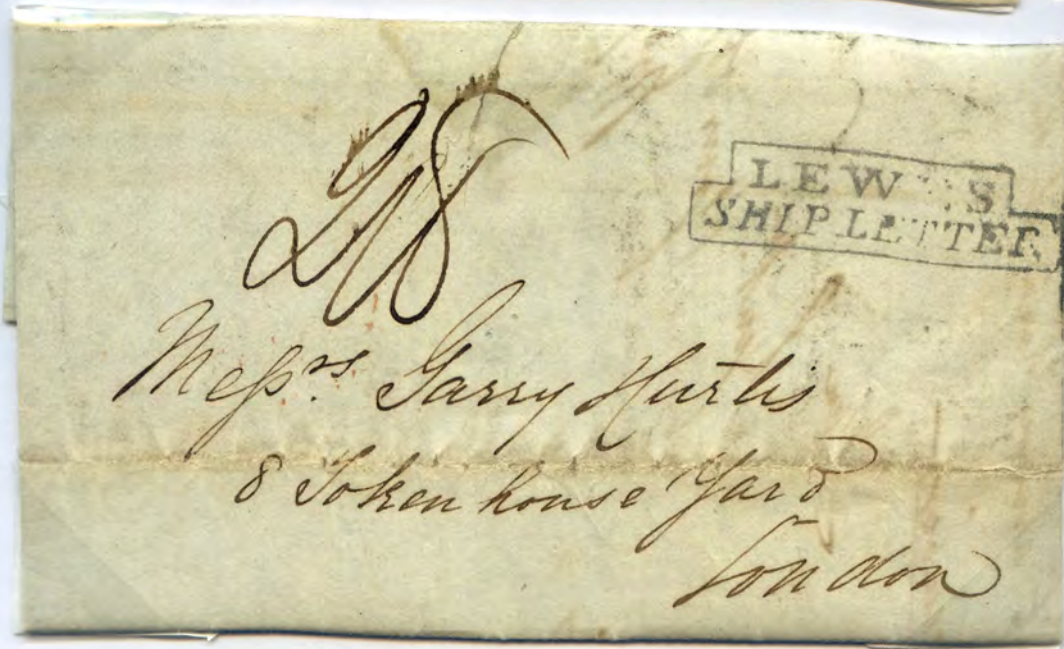 2/8
LEWES
SHIP LETTER
Messrs. Garry Hurtis
8 Token house Yard
London